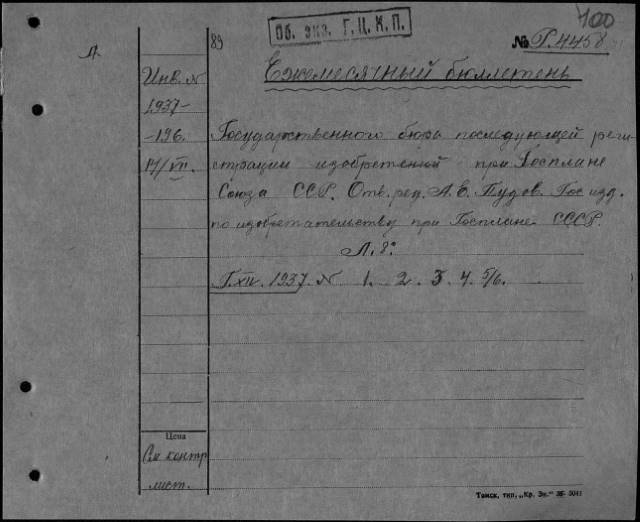 Об. экз. Г.Ц.К.П.
100
89
№ Р.4458
Ежемесячный бюллетень
Инв. №
1937-
-196.
17/VII.
Государственного бюро последующей реги-
страции изобретений при Госплане
Союза ССР. Отв. ред. А. Е. Тудов. Гос изд.
по изобретательству при Госплане СССР.
Л. 8°
Г. XIV. 1937. № 1. 2. 3. 4. 5/6.
Цена
См контр
лист.
Томск, тип. „Кр. Зн."